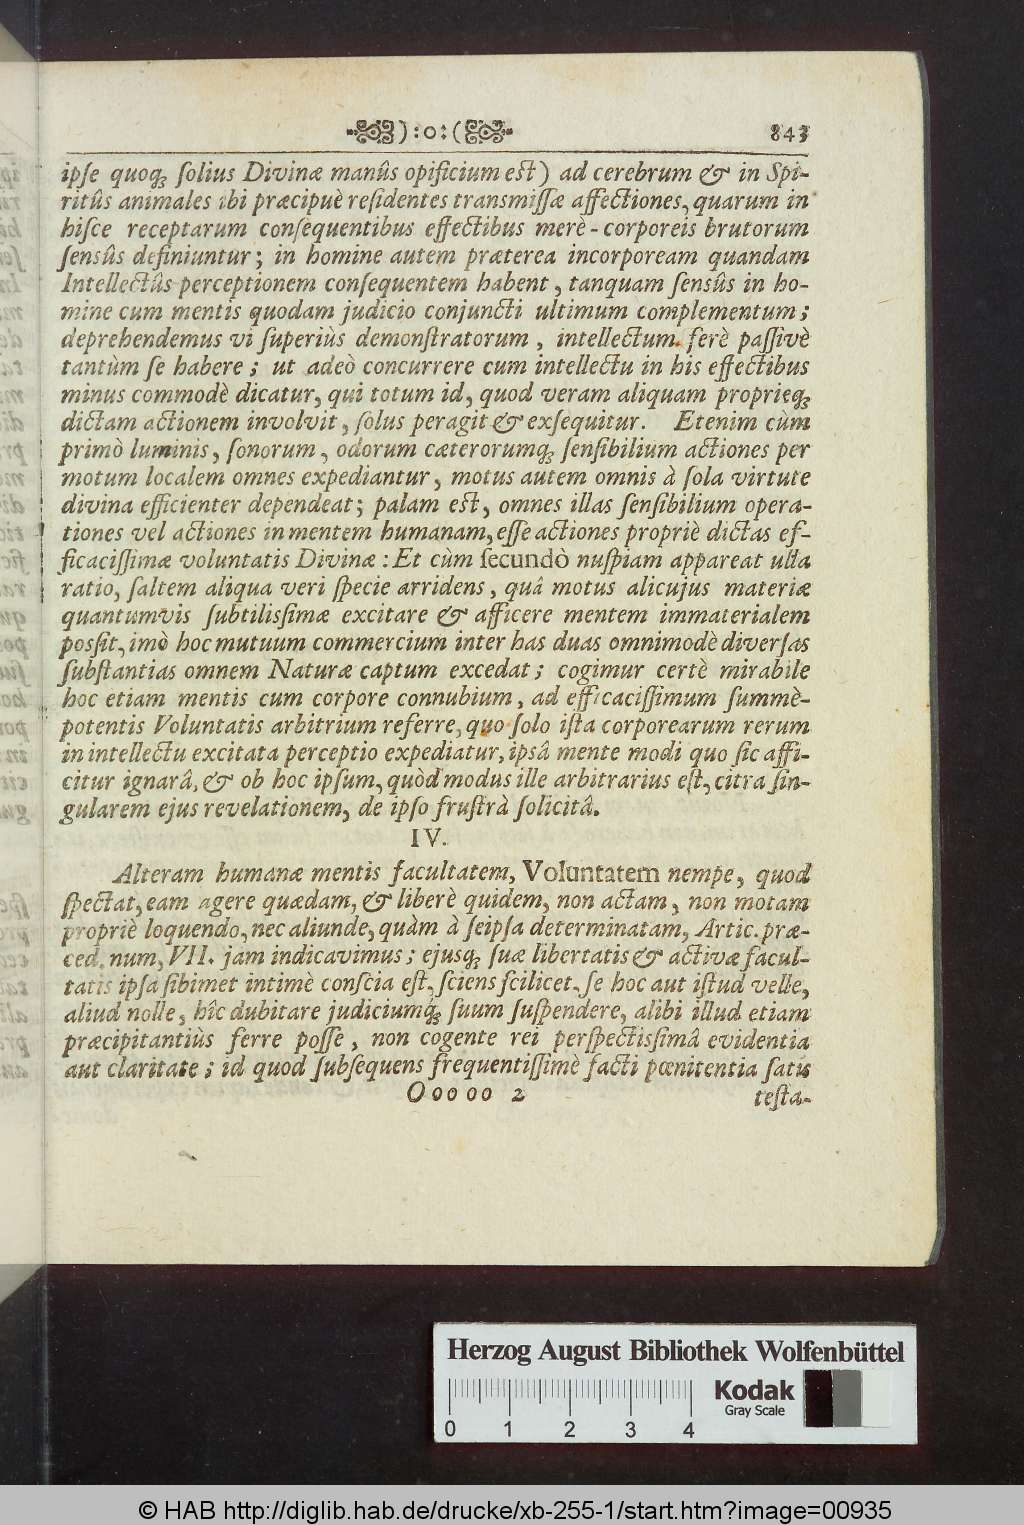 ):o:( 843
ipſe quoq; ſolius Divinæ manûs opificium eſt) ad cerebrum & in Spi-
ritûs animales ibi præcipuè reſidentes transmiſſæ affectiones, quarum in
hiſce receptarum conſequentibus effectibus merè-corporeis brutorum
ſensûs definiuntur; in homine autem præterea incorpoream quandam
Intellectûs perceptionem conſequentem habent, tanquam ſensûs in ho-
mine cum mentis quodam judicio conjuncti ultimum complementum;
deprehendemus vi ſuperiùs demonſtratorum, intellectum ferè paſſivè
tantùm ſe habere; ut adeò concurrere cum intellectu in his effectibus
minus commodè dicatur, qui totum id, quod veram aliquam proprieq;
dictam actionem involvit, ſolus peragit & exſequitur. Etenim cùm
primò luminis, ſonorum, odorum cæterorumq; ſenſibilium actiones per
motum localem omnes expediantur, motus autem omnis à ſola virtute
divina efficienter dependeat; palam eſt, omnes illas ſenſibilium opera-
tiones vel actiones in mentem humanam, eſſe actiones propriè dictas ef-
ficaciſſimæ voluntatis Divinæ: Et cùm ſecundò nuſpiam appareat ulla
ratio, ſaltem aliqua veri ſpecie arridens, quâ motus alicujus materiæ
quantumvis ſubtiliſſimæ excitare & afficere mentem immaterialem
poſſit, imò hoc mutuum commercium inter has duas omnimodè diverſas
ſubſtantias omnem Naturæ captum excedat; cogimur certè mirabile
hoc etiam mentis cum corpore connubium, ad efficaciſſimum ſummè-
potentis Voluntatis arbitrium referre, quo ſolo iſta corporearum rerum
in intellectu excitata perceptio expediatur, ipsâ mente modi quo ſic affi-
citur ignarâ, & ob hoc ipſum, quòd modus ille arbitrarius eſt, citra ſin-
gularem ejus revelationem, de ipſo fruſtrà ſolicitâ.
IV.
Alteram humanæ mentis facultatem, Voluntatem nempe, quod
ſpectat, eam agere quædam, & liberè quidem, non actam, non motam
propriè loquendo, nec aliunde, quàm à ſeipſa determinatam, Artic. præ-
ced. num, VII. jam indicavimus; ejusq; ſuæ libertatis & activæ facul-
tatis ipſa ſibimet intimè conſcia eſt, ſciens ſcilicet, ſe hoc aut iſtud velle,
aliud nolle, hîc dubitare judiciumq́; ſuum ſuſpendere, alibi illud etiam
præcipitantiùs ferre poſſe, non cogente rei perſpectiſſimâ evidentia
aut claritate; id quod ſubſequens frequentiſſimè facti pœnitentia ſatis
Ooooo 2 teſta-
Herzog August Bibliothek Wolfenbüttel
Kodak
Gray Scale
0 1 2 3 4
© HAB http://diglib.hab.de/drucke/xb-255-1/start.htm?image=00935